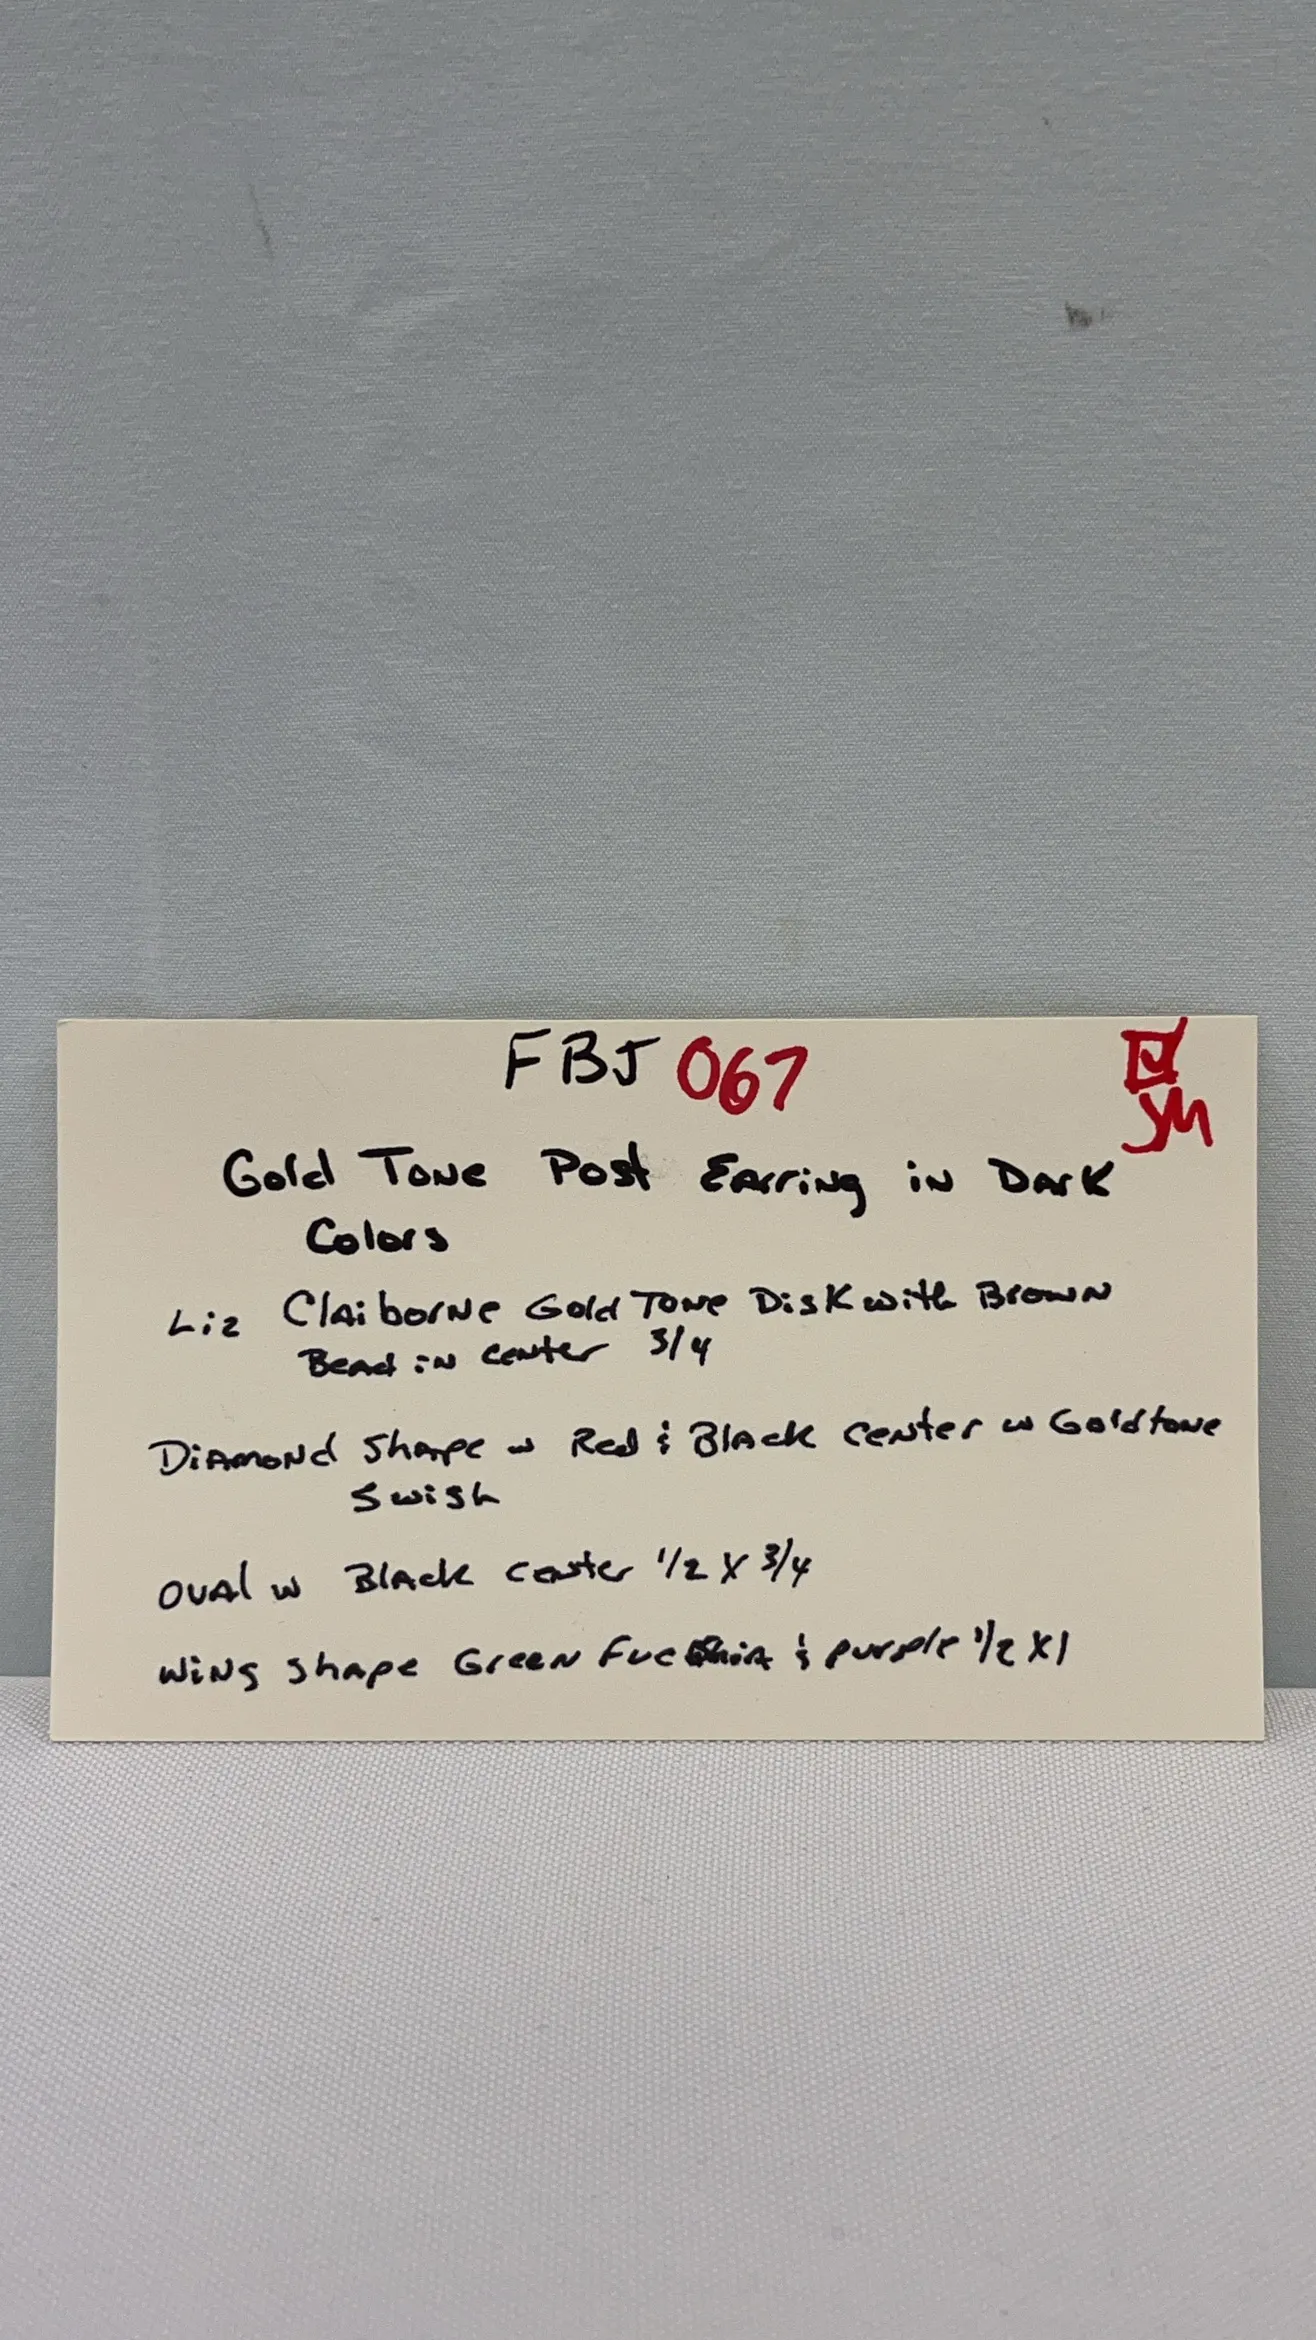 FBJ 067
JM
Gold Tone Post Earring in Dark
Colors
Liz Claiborne Gold Tone Disk with Brown
Bead in center 3/4
Diamond Shape w Red & Black Center w Goldtone
Swish
Oval w Black Center 1/2 X 3/4
Wing Shape Green Fuchsia & purple 1/2 X 1